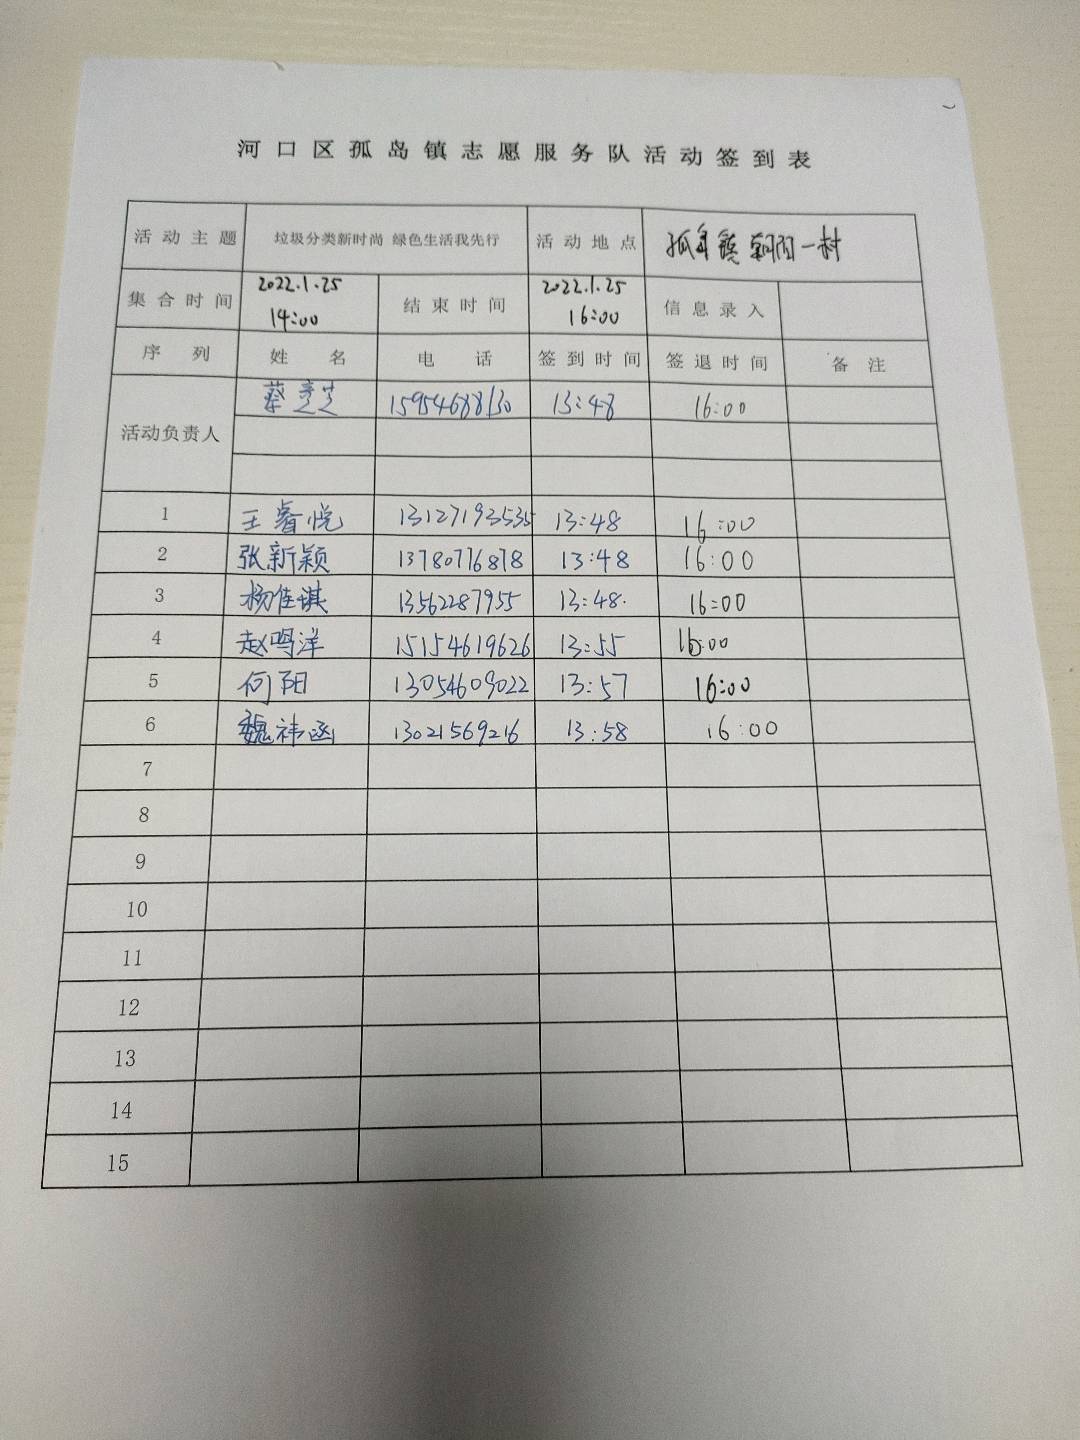 河口区孤岛镇志愿服务队活动签到表
活动主题 垃圾分类新时尚 绿色生活我先行 活动地点 孤岛镇朝阳一村
集合时间 2022.1.25 14:00 结束时间 2022.1.25 16:00 信息录入
序列 姓名 电话 签到时间 签退时间 备注
活动负责人 蔡 芝 15954688130 13:48 16:00
1 王睿悦 13127193535 13:48 16:00
2 张新颖 13780776878 13:48 16:00
3 杨佳琪 13562287955 13:48. 16:00
4 赵鸣洋 15154619626 13:55 16:00
5 向阳 13054609022 13:57 16:00
6 魏祎函 13021569216 13:58 16:00
7
8
9
10
11
12
13
14
15